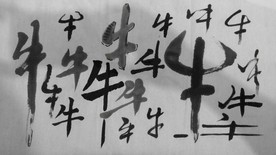 牛 牛 牛 牛 牛 牛
牛 牛 牛 牛 牛 牛
牛 牛 牛 牛 牛 牛